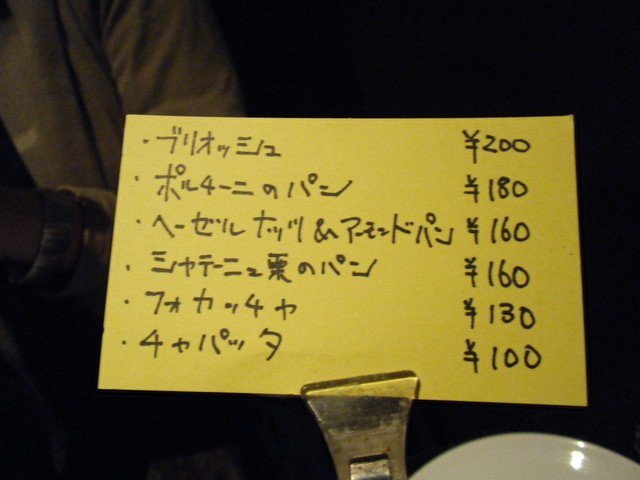 ・ブリオッシュ ¥200
・ポルチーニのパン ¥180
・ヘーゼルナッツ&アーモンドパン ¥160
・シャテーニュ栗のパン ¥160
・フォカッチャ ¥130
・チャパッタ ¥100